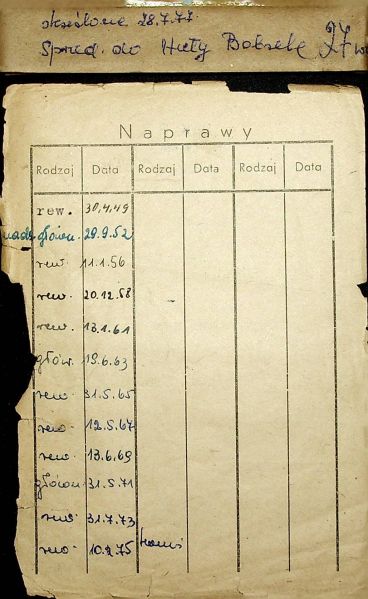 skreślone 28.7.77.
Sprzed. do Huty Bobrek
Naprawy
Rodzaj Data Rodzaj Data Rodzaj Data
rew. 30.4.49
główn. 29.9.52
rew. 11.1.56
rew. 20.12.58
rew. 13.1.61
główn. 19.6.63
rew. 31.5.65
rew. 12.5.67
rew. 13.6.69
główn. 31.5.71
rew. 31.7.73
rew. 10.2.75